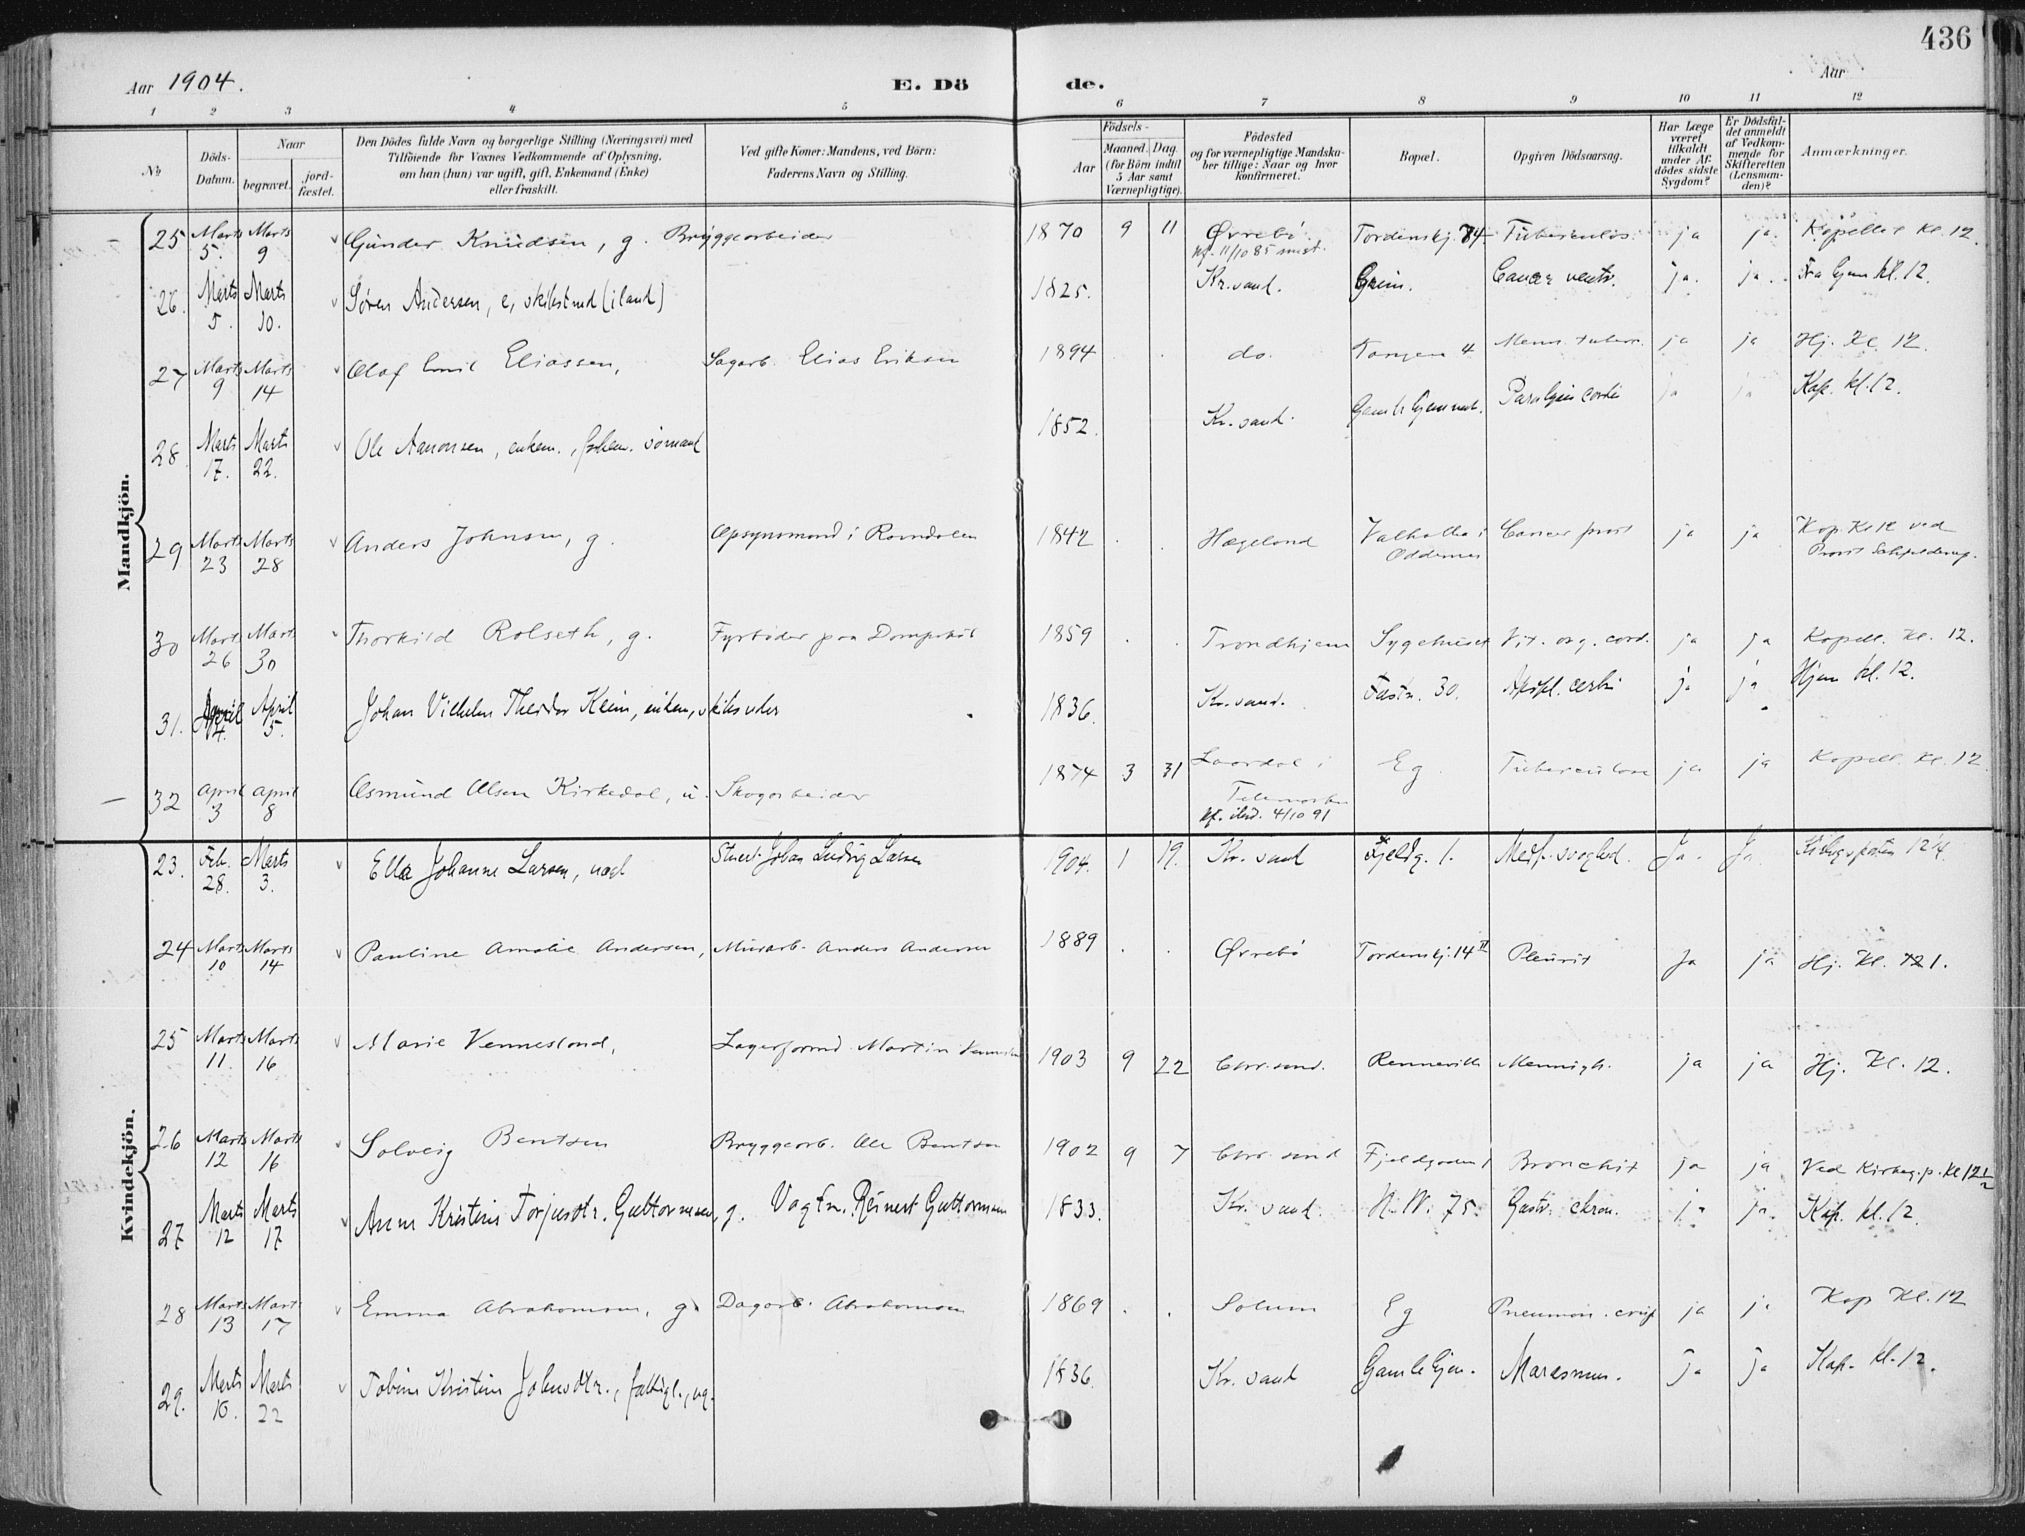 436
Aar 1904. E. Dö de. Aar
1 2 3 4 5 6 7 8 9 10 11 12
№
Döds-Datum.
Naar
begravet.
jord-fæstet.
Den Dödes fulde Navn og borgerlige Stilling (Næringsvei) med
Tilföiende for Voxnes Vedkommende af Oplysning,
om han (hun) var ugift, gift, Enkemand (Enke)
eller fraskilt.
Ved gifte Koner: Mandens, ved Börn:
Faderens Navn og Stilling.
Födsels-
Aar
Maaned. Dag.
(for Börn indtil
5 Aar samt
Værnepligtige).
Födested
og for værnepligtige Mandska-
ber tillige: Naar og hvor
Konfirmeret.
Bopæl.
Opgiven Dödsaarsag.
Har Læge
været
tilkaldt
under Af-
dödes sidste
Sygdom?
Er Dödsfal-
det anmeldt
af Vedkom-
mende for
Skifteretten
(Lensman-
den)?
Anmærkninger.
Mandkjön.
25 Marts 5. Marts 9 Gunder Knudsen, g. Bryggearbeider 1870 9 11 Øvrebö Tordenskj. 84 Tuberculos. ja ja Kapellet Kl. 12.
kf. 11/10 85
26. Marts 5. Marts 10. Sören Andersen, e, skibstmd (iland) 1825. Kr.sand. Grim. Cancer ventr. ja. ja. Fra Hjem kl. 12
27 Marts 9 Marts 14 Olaf Emil Eliassen, Sagarb. Elias Eriksen 1894 do. Tangen 4 Menn. tuberc. ja ja Hj. Kl. 12.
28 Marts 17. Marts 22. Ole Aanonsen, enkem., sömand 1852. Kr. sand. Gamle Hjemmet. Paralysis cordis ja ja Kap. kl. 12.
29 Marts 23 Marts 28 Anders Johnsen, g. Opsynsmand i Ravndalen 1842 Hægeland Valhalla i Cancer prost ja ja Kap. Kl 12 ved
Oddernes Provst
30 Marts 26 Marts 30 Thorkild Rolseth, g. Fyrböder paa Dampskib 1859 Trondhjem Sygehuset Vit. org. cord. ja ja Kapell. Kl. 12.
31. April 4. April 5. Johan Vilhelm Theodor Klein, enkem, skibsreder 1836. Kr.sand. Fæstn. 30. Apopl. cerbri ja ja Hjem kl. 12.
32 April 3 April 8 Osmund Olsen Kirkedal, u. Skogarbeider 1874 3 31 Laardal i Eg Tuberculose ja ja Kapell. Kl. 12
Telemarken
kf. ibid. 4/10 91
Kvindekjön.
23. Feb. 28. Marts 3. Ella Johanne Larsen, Stuert. Johan Ludvig Larsen 1904. 1 19. Kr. sand Fjeldg. 1. Medf. svaghed. Ja. Ja 12 1/4.
24 Marts 10 Marts 14 Pauline Amalie Andersen, Murarb. Anders Andersen 1889 Øvrebö Tordenskj. 14 II Pleurit Ja ja Hj. Kl. 12 1.
25 Marts 11. Marts 16 Marie Vennesland, Lagerformd Martin 1903 9 22 Chr.sand. Mennigit. ja ja Hj. Kl. 12.
26 Marts 12 Marts 16 Solveig Bentsen Bryggearb. Ole Bentsen 1902 9 7 Chr.sand Fjeldgaden 1 Bronchit ja ja Ved Kirkeg.p. Kl 12 1/2
27 Marts 12 Marts 17 Anne Kristine Torjusdtr. Guttormsen, g. Vagtm. Reinert Guttormsen 1833. Kr. sand. H. W. 75. Gastr. chron. ja ja. Kap. kl. 12.
28 Marts 13 Marts 17 Emma Abrahamsen, g. Dagarb. Abrahamsen 1869 Solum Eg Pneumon. crup ja ja Kap Kl. 12
29. Marts 16. Marts 22 Tobine Kristine Johnsdtr., fattigl., ug. 1836. Kr. sand Gamle Hjem. Marasmus. Ja Ja Kap. kl. 12.